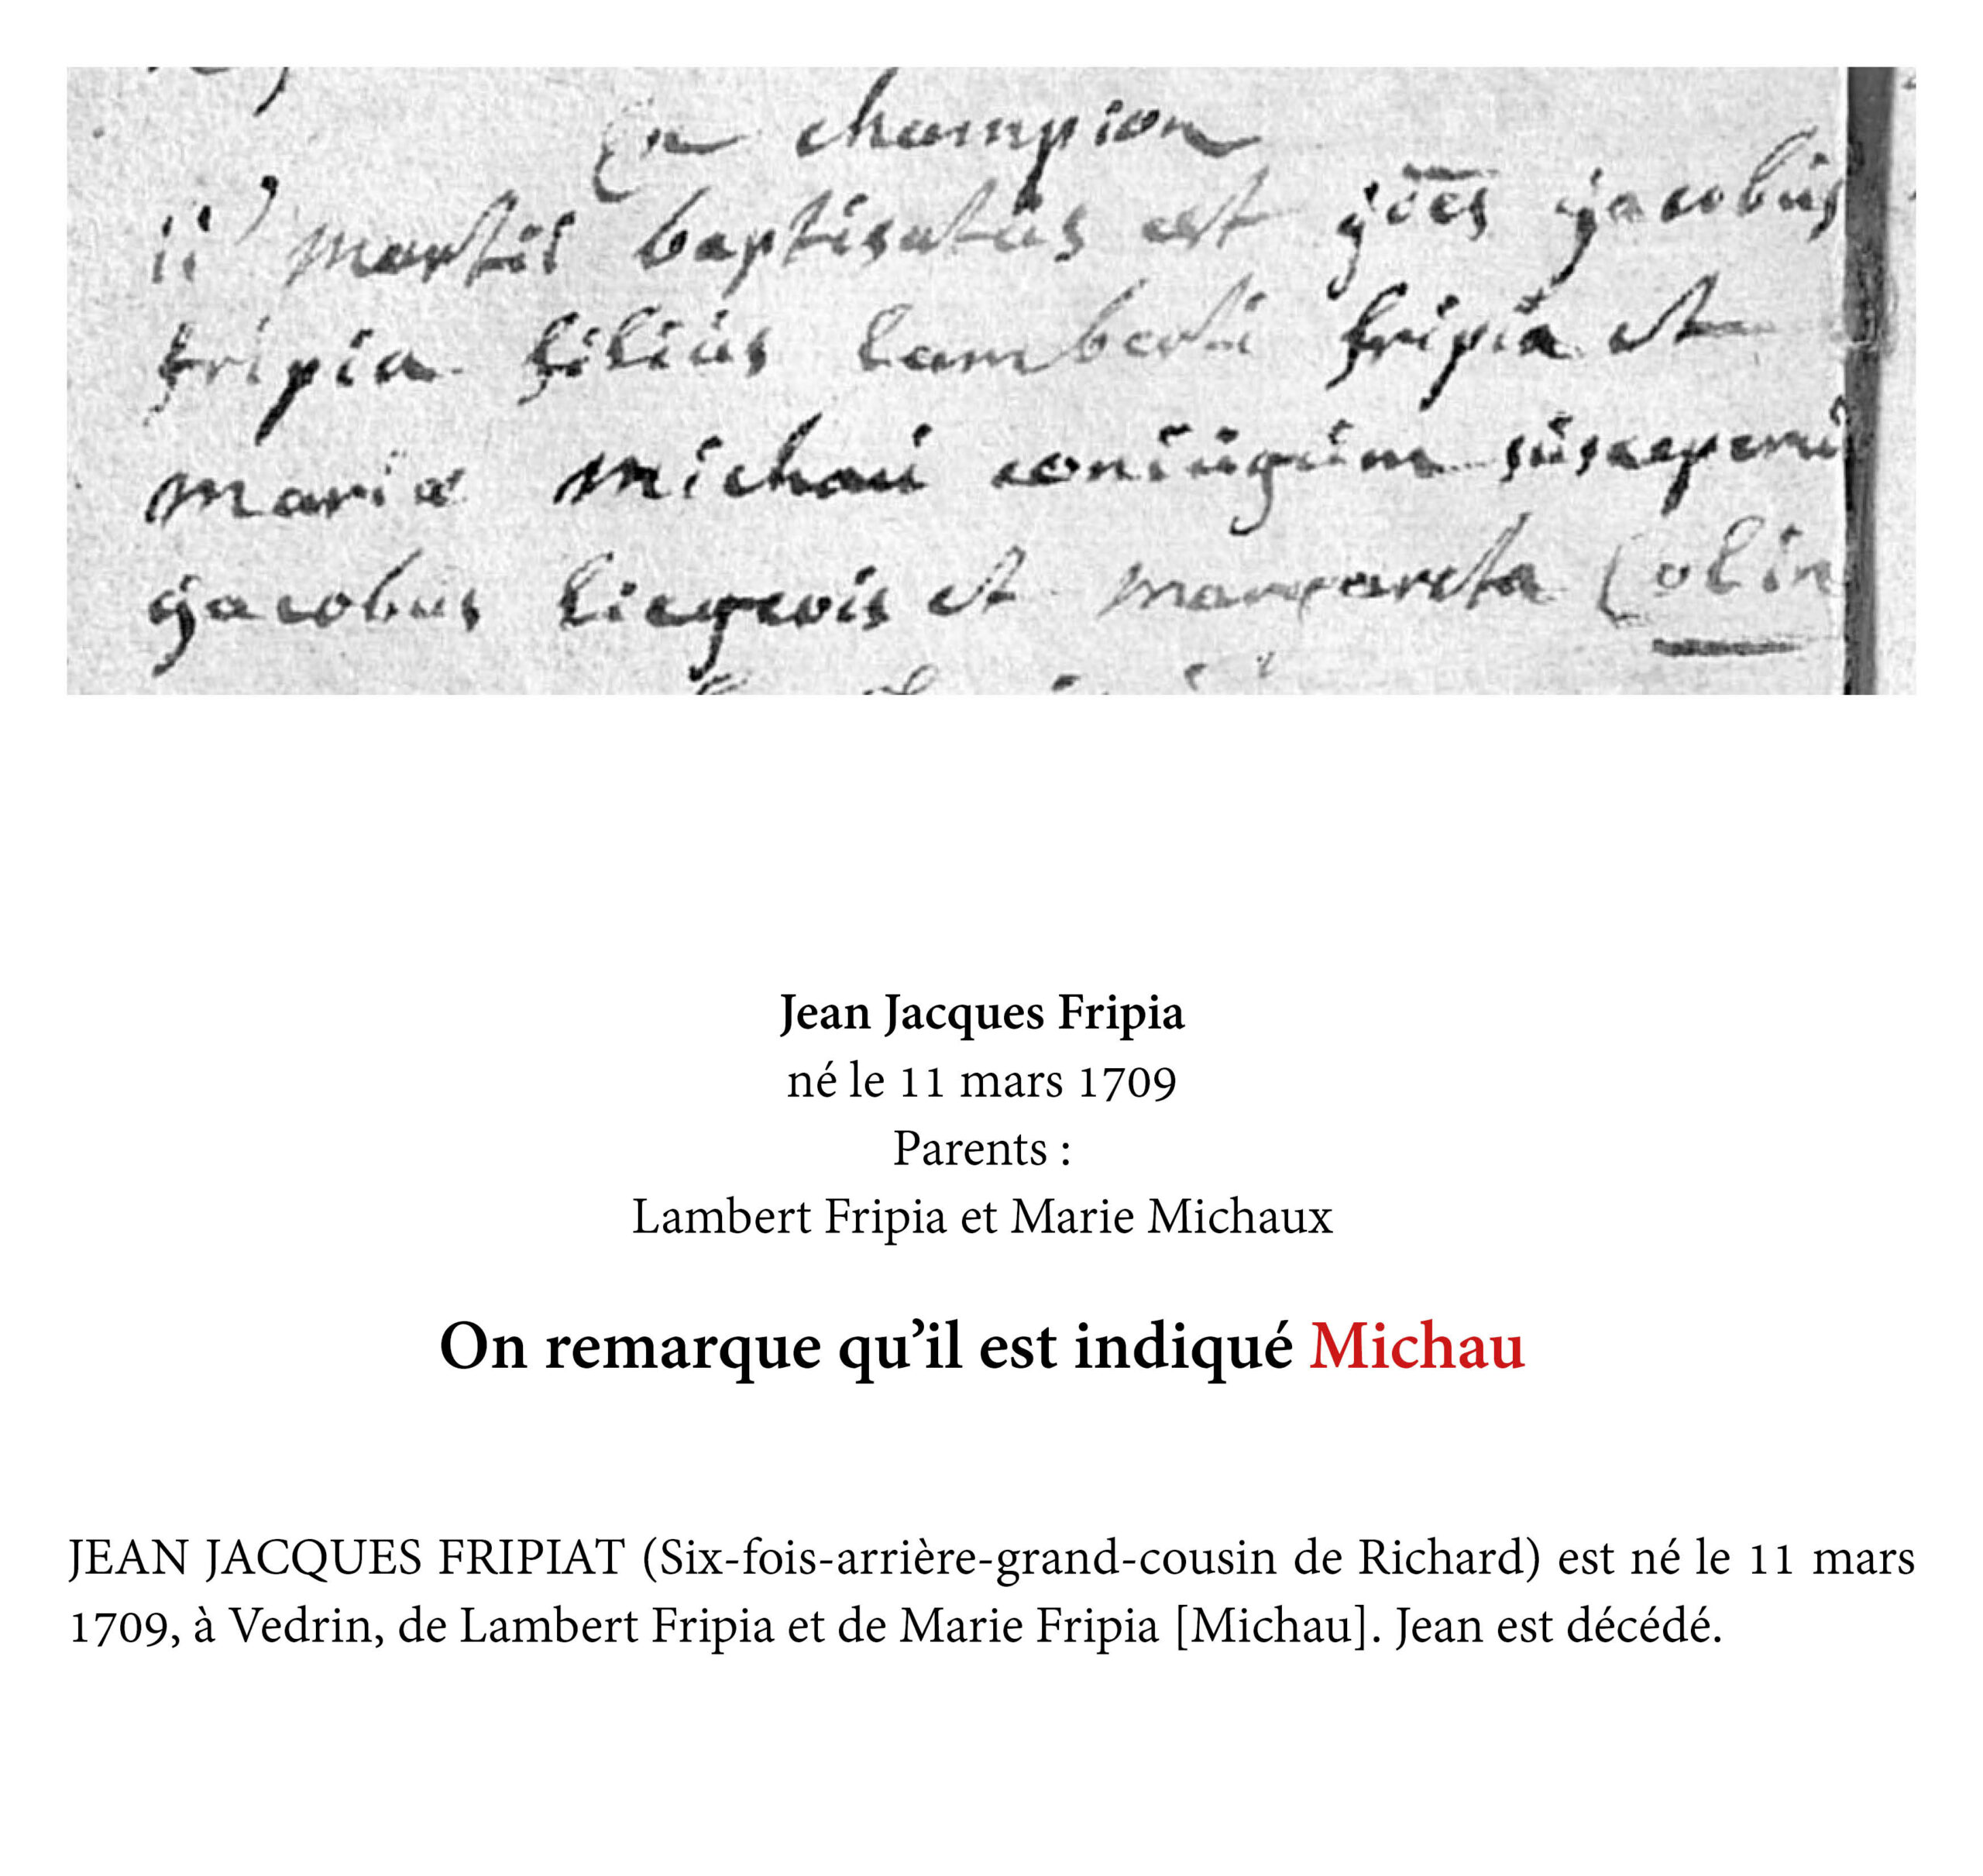 En champion
11 martii baptisatus est jões jacobus
fripia filius lamberti fripia et
mariæ michau coniugum susceperu
jacobus liegeois et margareta Colin
Jean Jacques Fripia
né le 11 mars 1709
Parents :
Lambert Fripia et Marie Michaux
On remarque qu’il est indiqué Michau
JEAN JACQUES FRIPIAT (Six-fois-arrière-grand-cousin de Richard) est né le 11 mars
1709, à Vedrin, de Lambert Fripia et de Marie Fripia [Michau]. Jean est décédé.